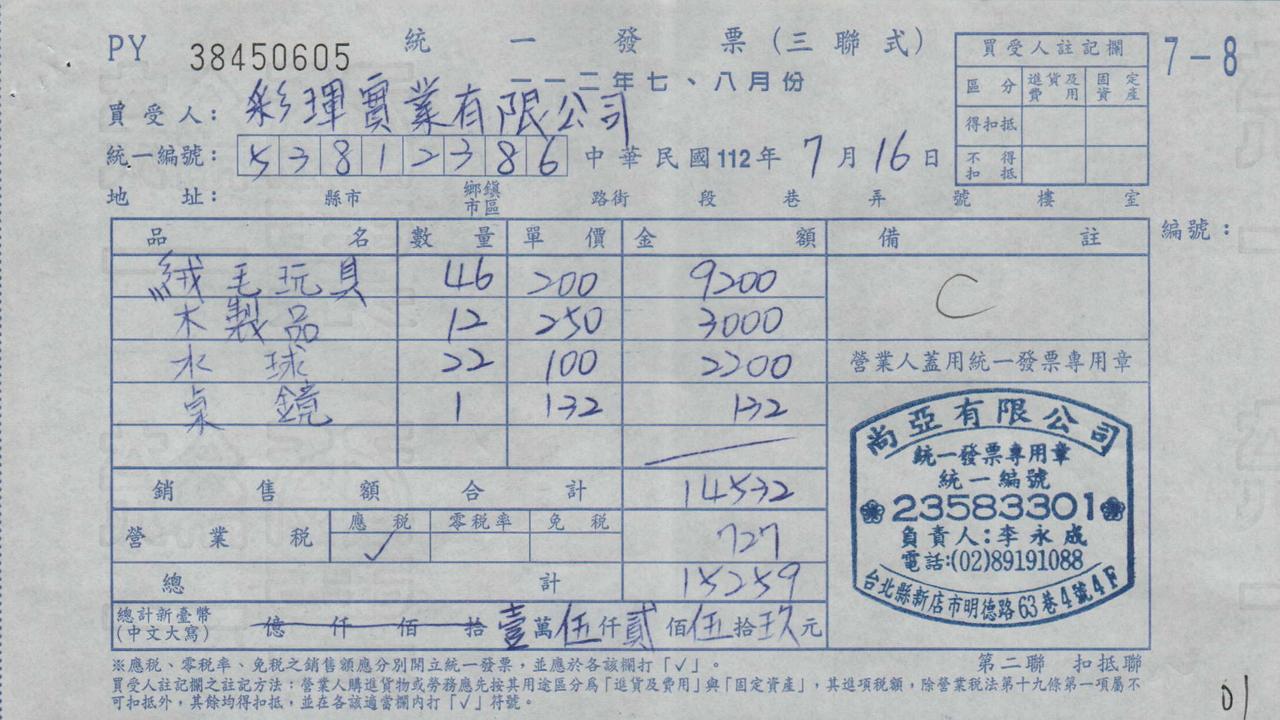 PY 38450605 統一發票(三聯式)
一一二年七、八月份
7-8
買受人: 彩琿實業有限公司
統一編號: 53812386 中華民國112年 7月16日
地址: 縣市 鄉鎮市區 路街 段 巷 弄 號 樓 室
買受人註記欄
區分 進貨及費用 固定資產
得扣抵
不得扣抵
編號:
品名 數量 單價 金額 備註
絨毛玩具 46 200 9200 C
木製品 12 250 3000
水球 22 100 2200
桌鏡 1 132 132
營業人蓋用統一發票專用章
銷售額合計 14532
營業稅 應稅 零稅率 免稅
✓ 727
總計 15259
總計新臺幣(中文大寫) 億仟佰拾壹萬伍仟貳佰伍拾玖元
尚亞有限公司
統一發票專用章
統一編號
23583301
負責人:李永成
電話:(02)89191088
台北縣新店市明德路63巷4號4F
※應稅、零稅率、免稅之銷售額應分別開立統一發票,並應於各該欄打「✓」。
第二聯 扣抵聯
買受人註記欄之註記方法:營業人購進貨物或勞務應先按其用途區分為「進貨及費用」與「固定資產」,其進項稅額,除營業稅法第十九條第一項屬不
可扣抵外,其餘均得扣抵,並在各該適當欄內打「✓」符號。
01